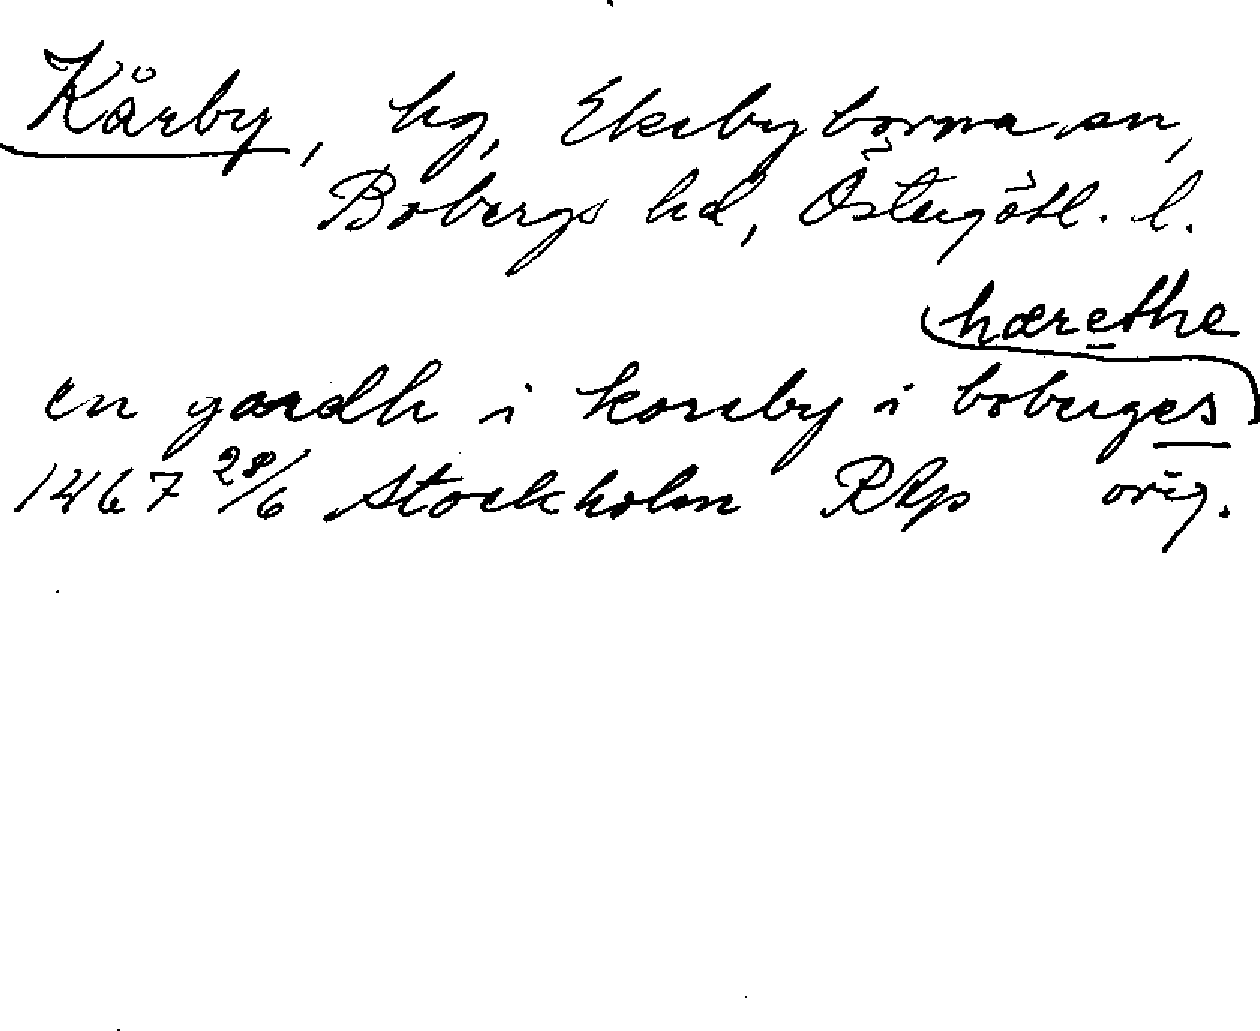 Kårby, hg, Ekebyborna sn,
Bobergs hd, Östergötl. l.
en gardh i koreby i boberges hærethe
1467 28/6 Stockholm RAp orig.